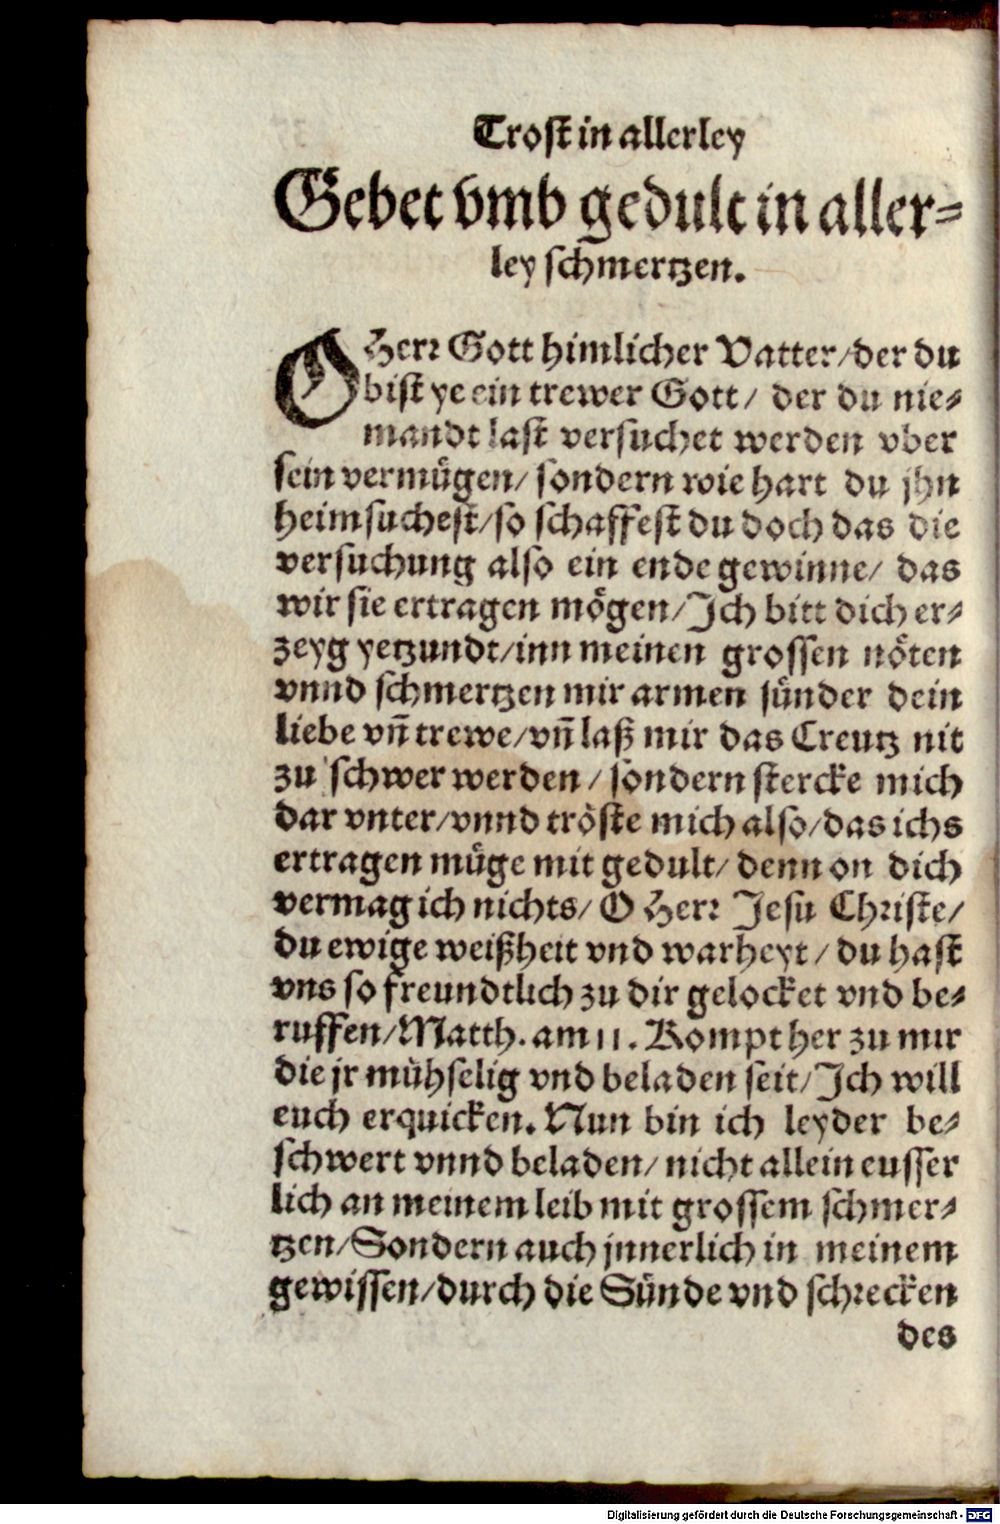 Trost in allerley
Gebet vmb gedult in aller-
ley schmertzen.
O Herr Gott himlicher Vatter/der du
bist ye ein trewer Gott/ der du nie-
mandt last versuchet werden vber
sein vermügen/ sondern wie hart du jhn
heimsuchest/so schaffest du doch das die
versuchung also ein ende gewinne/ das
wir sie ertragen mögen/Ich bitt dich er-
zeyg yetzundt/inn meinen grossen nöten
vnnd schmertzen mir armen sünder dein
liebe vñ trewe/vñ laß mir das Creutz nit
zu schwer werden/ sondern stercke mich
dar vnter/vnnd tröste mich also/das ichs
ertragen müge mit gedult/ denn on dich
vermag ich nichts/ O Herr Jesu Christe/
du ewige weißheit vnd warheyt/ du hast
vns so freundtlich zu dir gelocket vnd be-
ruffen/Matth. am 11. Kompt her zu mir
die jr mühselig vnd beladen seit/Ich will
euch erquicken. Nun bin ich leyder be-
schwert vnnd beladen/ nicht allein eusser
lich an meinem leib mit grossem schmer-
tzen/Sondern auch jnnerlich in meinem
gewissen/durch die Sünde vnd schrecken
des
Digitalisierung gefördert durch die Deutsche Forschungsgemeinschaft - DFG